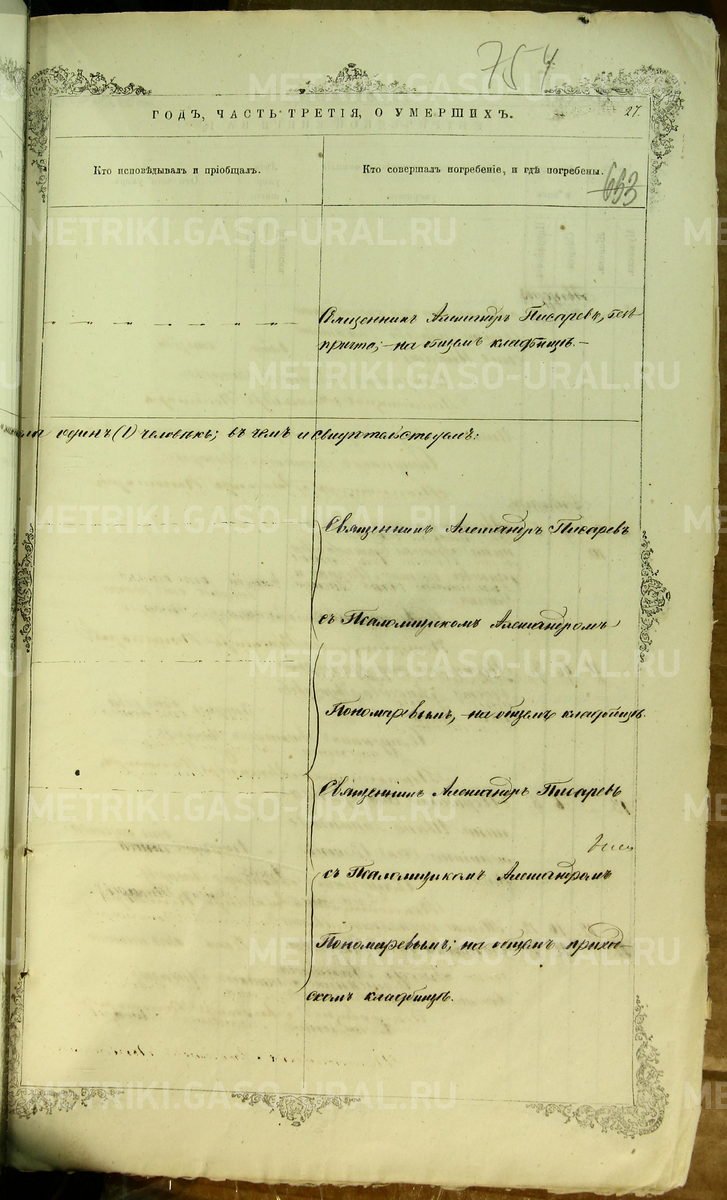 757
ГОДЪ, ЧАСТЬ ТРЕТІЯ, О УМЕРШИХЪ.
27.
Кто исповѣдывалъ и пріобщалъ.
Кто совершалъ погребеніе, и гдѣ погребены.
663
Священникъ Александръ Писаревъ, безъ
причта; на общемъ кладбищѣ.
одинъ (1) человѣкъ; въ чемъ и свидѣтельствуемъ:
Священникъ Александръ Писаревъ
съ Псаломщикомъ Александромъ
Пономаревымъ, на общемъ кладбищѣ.
Священникъ Александръ Писаревъ
съ Псаломщикомъ Александромъ
Пономаревымъ; на общемъ приход-
скомъ кладбищѣ.
METRIKI.GASO-URAL.RU